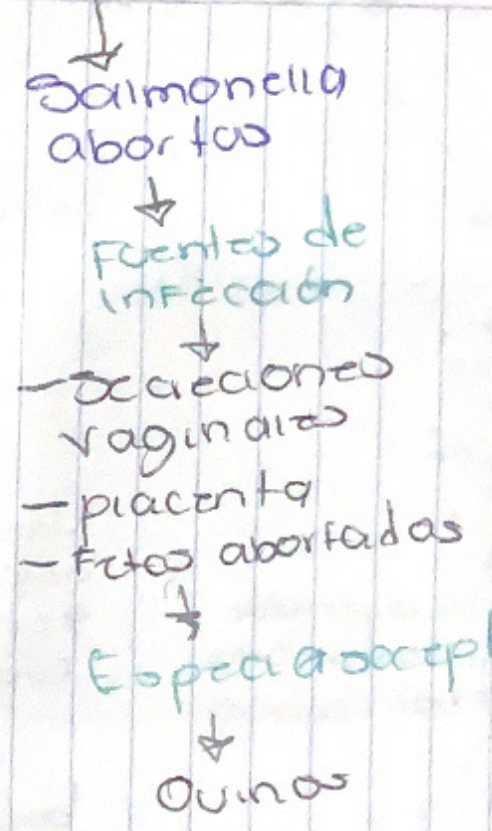 Salmonella
abortus
Fuentes de
infección
- Secreciones
vaginales
- placenta
- Fetos abortados
Especia suscept
Ovinos